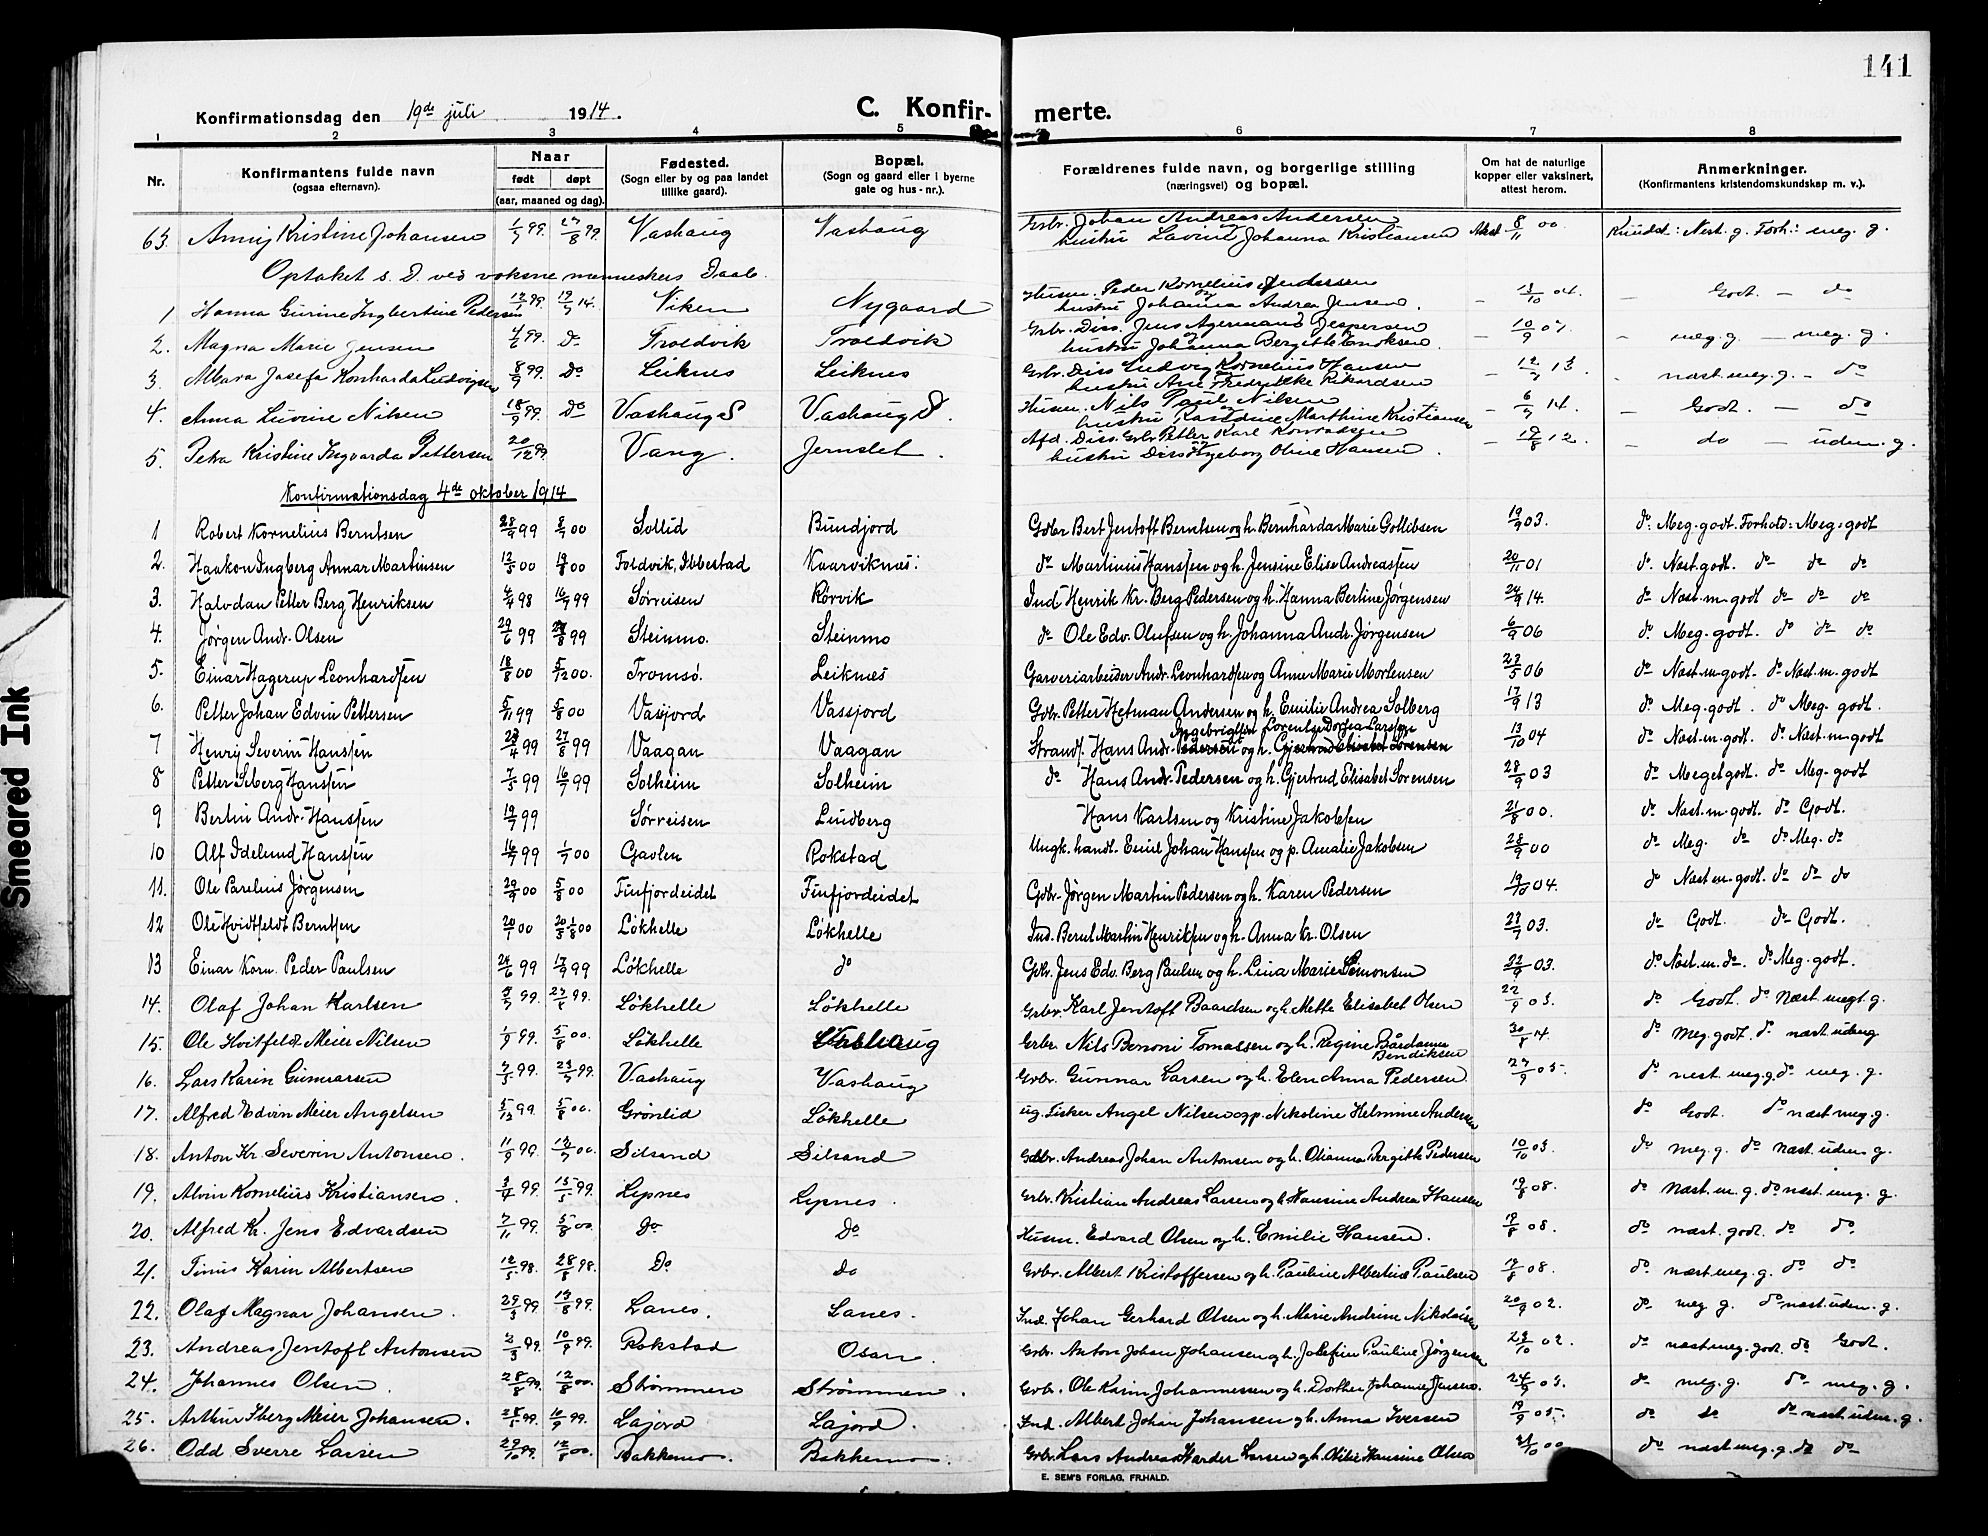 141
Konfirmationsdag den 19de juli 1914.
C. Konfir- merte.
1 2 3 4 5 6 7 8
Nr.
Konfirmantens fulde navn
(ogsaa efternavn).
Naar
født døpt
(aar, maaned og dag).
Fødested.
(Sogn eller by og paa landet
tillike gaard).
Bopæl.
(Sogn og gaard eller i byerne
gate og hus - nr.).
Forældrenes fulde navn, og borgerlige stilling
(næringsvei) og bopæl.
Om hat de naturlige
kopper eller vaksinert,
attest herom.
Anmerkninger.
(Konfirmantens kristendomskundskap m. v.).
63. Anny Kristine Johansen 1/7 99. Vashaug Vashaug Grbr. Johan Andreas Andersen og hustru Lavine Johanna Kristiansen Attest 8/11 00 Kundst: Næst. g. Forh.: meg. g.
Optaket s. D. ved voksne menneskers Daab.
1 Hanna Gurine Ingbertine Pedersen 99. 19/7 14. Viken Nygaard Husm. Peder Kornelius Andersen og hustru Johanna Andrea Jensen. - 13/10 04. - Godt. - do
2. Magna Marie Jensen 4/6 99. Do Troldvik Troldvik Grbr. Diss. Jens Agermand Jespersen og hustru Johanna Bergitte Enoksen. - 10/9 07. - meg. g. - meg. g.
3. Alvara Josefa Konharda Ludvigsen 8/9 99. Do Leiknes Leiknes Grbr. Diss Ludvig Kornelius Hansen og hustru Ane Fredrikke Rikardsen - 12/7 13. - næst. meg. g. - do
4. Anna Luvine Nilsen 18/9 99. Do Vashaug S Vashaug S. Husm. Nils Paul Nilsen og hustru Marthine Kristiansen - 6/7 14. - Godt. - do
5. Petra Kristine Ingvarda Pettersen 20/12 99. Vang. Jernslet. Afd. Diss. Grbr Petter Karl Konradsen og hustru Diss Ingeborg Oline Hansen. - 19/8 12. - do - udm. g.
Konfirmationsdag 4de oktober 1914
1 Robert Kornelius Berntsen 28/9 99 8/7 00 Sollid Bundjord Gdbr Bert Jentoft Berntsen og h. Bernharda Marie Gotlibsen 19/9 03. do: Meg. godt. Forhold: Meg. godt
2. Haakon Ingberg Annar Martinsen 12/5 00 19/8 00 Foldvik, Ibbestad Kaarviknes: do Martinius Hanssen og h. Jensine Elise Andreassen 20/11 01 do. Næst. godt. do do do
3. Halvdan Petter Berg Henriksen 4/4 98 16/7 99 Sørreisen Rørvik Ind Henrik Kr. Berg Pedersen og h. Hanna Bertine Jørgensen 24/9 14. do Næst. m. godt do do do
4. Jørgen Andr. Olsen 29/6 99 27/8 99 Steinmo. Steinmo do Ole Edv. Olufsen og h. Johanna Andr. Jørgensen 6/9 06 do. Meg. godt. do do do
5. Einar Hagerup Leonhardsen 18/8 00 5/12 00. Tromsø. Leiknes Garveriarbeider Andr. Leonhardsen og Anne Marie Mortensen 23/5 06 do Næst. m. godt. do Næst. m. godt
6. Petter Johan Edvin Pettersen 5/11 99 5/8 00 Vasjord Vassjord Gdbr. Petter Hetman Andersen og h. Emilie Andrea Solberg 17/9 13 do. Meg. godt. do Meg. godt.
Ingebrigtsen Lorentse Dorthea Larssen
7 Henry Severin Hanssen 23/4 99 27/8 99 Vaagan Vaagan Strands. Hans Andr. Pedersen og h. Gjertrud Elisabet Sørensen 13/10 04 do Næst. m. godt. do Næst. m. godt
8 Petter Seberg Hanssen 7/5 99 16/7 99 Solheim Solheim do Hans Andr. Pedersen og h. Gjertrud Elisabet Sørensen 28/9 03 do Meget godt. do Meg. godt
9 Bertin Andr. Hanssen 19/7 99 Sørreisen Lindberg Hans Karlsen og Kristine Jakobsen 21/8 00. do Næst. m. godt. do Godt.
10 Alf Idelund Hanssen 16/7 99 1/7 00 Gavlen Rokstad Ungk. handl. Emil Johan Hanssen og p. Amalie Jakobsen 28/9 00 do Meg. do do Meg. do
11. Ole Parelius Jørgensen 29/4 00 5/8 00 Finfjordeidet Finfjordeidet Gdbr. Jørgen Martin Pedersen og h. Karen Pedersen 19/10 04. do Næst m. godt. do do do
12 Ole Hvidtfeldt Berntsen 20/1 00 Løkhelle Løkhelle Ind. Bernt Martin Henriksen og h. Anna Kr. Olsen 23/7 03. do Godt. do Godt.
13 Einar Korn. Peder Paulsen 24/6 99 17/9 99 Løkhelle do Gdbr. Jens Edv. Berg Paulsen og h. Lina Marie Simonsen 22/9 03. do Næst. m. do. do Meg. godt.
14. Olaf Johan Karlsen 99. 99. Løkhelle Løkhelle Grbr. Karl Jentoft Baardsen og h. Mette Elisabet Olsen 22/9 03. do Godt. do Næst meg. g.
15. Ole Hvitfeldt Meier Nilsen 1/9 99. 5/8 00. Løkhelle Vashaug Grbr. Nils Benoni Tomassen og h. Regine Bårdanna Bendiksen 30/8 14. do Meg. godt. do næst. udm g
16. Lars Karin Gunnarsen 7/5 99. 23/7 99. Vashaug Vashaug Grbr. Gunnar Larsen og h. Elen Anna Pedersen 27/9 05. do næst. meg. g. do meg. g.
17. Alfred Edvin Meier Angelsen 5/12 99 5/8 00. Grønlid Løkhelle ug. Fisker Angel Nilsen og p. Nikoline Helmine Andersen do Godt. do næst meg. g.
18. Anton Kr. Severin Antonsen. 11/9 99. Silsand Silsand Gdbr. Andreas Johan Antonsen og h. Olianna Bergitte Pedersen 10/10 03. do meg. g. do næst. udm g.
19. Alvin Kornelius Kristiansen. 99. 15/5 99. Lysnes Lysnes. Grbr. Kristian Andreas Larsen og h. Hansine Andrea Hansen 19/8 08. do Næst. m. g. do næst. meg. g.
20. Alfred Kr. Jens Edvardsen 7/11 99. 5/8 00. Do Do Husm. Edvard Olsen og h. Emilie Hansen. 19/8 08. do næst. godt. do do
21. Tinus Karin Albertsen 12/5 98. 28/8 98. Do do Grbr. Albert Kristoffersen og h. Pauline Albertine Paulsen 08. do næst. meg. g. do do
22. Olaf Magnar Johansen. 29/3 99 13/8 99. Lanes. Lanes. Ind. Johan Gerhard Olsen og h. Marie Andrine Nikolaisen 20/9 02. do meg g. do næst. udm. g.
23. Andreas Jentoft Antonsen 2/3 99. 10/9 99. Rokstad Osan. Grbr. Anton Johan Johansen og h. Josefine Pauline Jørgensen 23/10 02. do næst meg. godt. do Godt.
24. Johannes Olsen. 28/8 99. 12/8 00. Strømmen Strømmen. Grbr. Ole Karin Johannessen og h. Dorthea Johanne Jensen. 24/9 03. do meg. g. do meg. g.
25. Arthur Iberg Meier Johansen. 99. 10/9 99. Lajord Lajord. Ind. Albert Johan Johansen og h. Anna Iversen 19/9 05. do do do næst udm. g.
26. Odd Sverre Larsen 29/10 99 12/8 00. Bakkemo. Bakkemo. Grbr. Lars Andreas Harder Larsen og h. Otilie Hansine Olsen 00. do næst meg. g. do do
E. SEM'S FORLAG, FR.HALD.
Smeared Ink